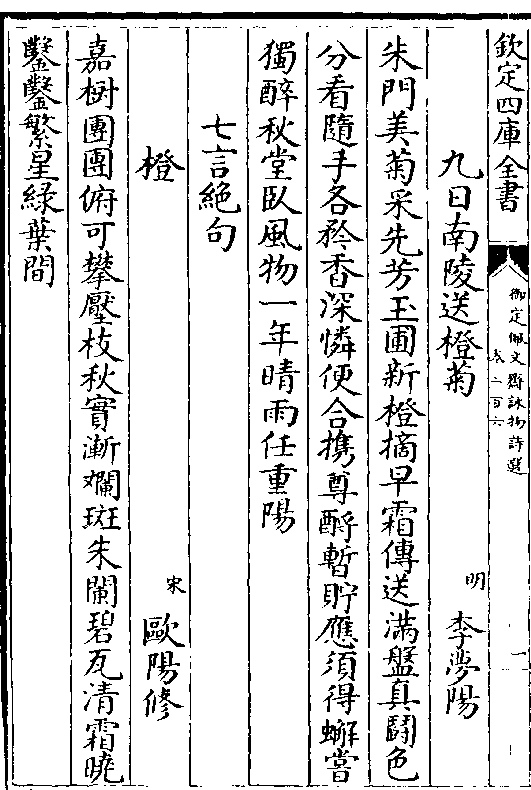 欽定四庫全書
御定佩文齋詠物詩選
卷二百六
九日南陵送橙菊
明 李夢陽
朱門美菊采先芳玉圃新橙摘早霜傳送滿盤真鬪色
分看隨手各矜香深憐便合携尊酹暫貯應須得蠏嘗
獨醉秋堂臥風物一年晴雨任重陽
七言絶句
橙
宋 歐陽修
嘉樹團團俯可攀壓枝秋實漸斕斑朱闌碧瓦清霜曉
鑿鑿繁星緑葉間